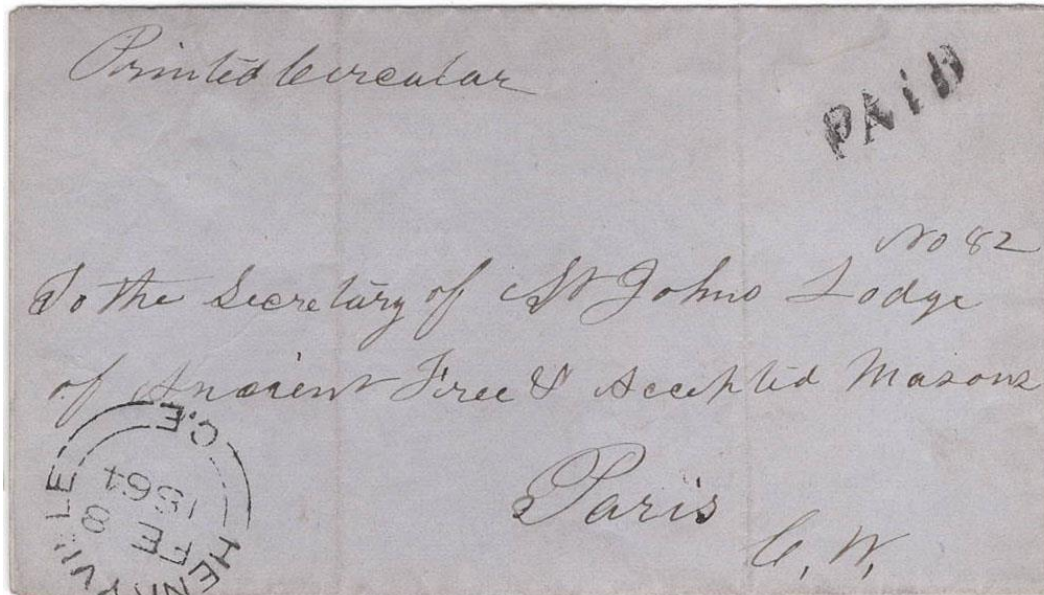 Printed Circular
PAID
No 82
To the Secretary of St Johns Lodge
of Ancient Free & Accepted Masons
Paris
C. W.
HENRYVILLE C.E.
FE 8
1864